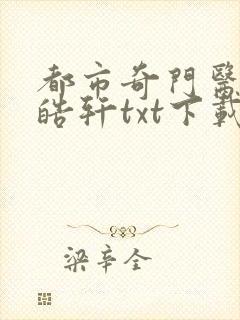 都市奇門醫
皓軒txt下載
梁辛全